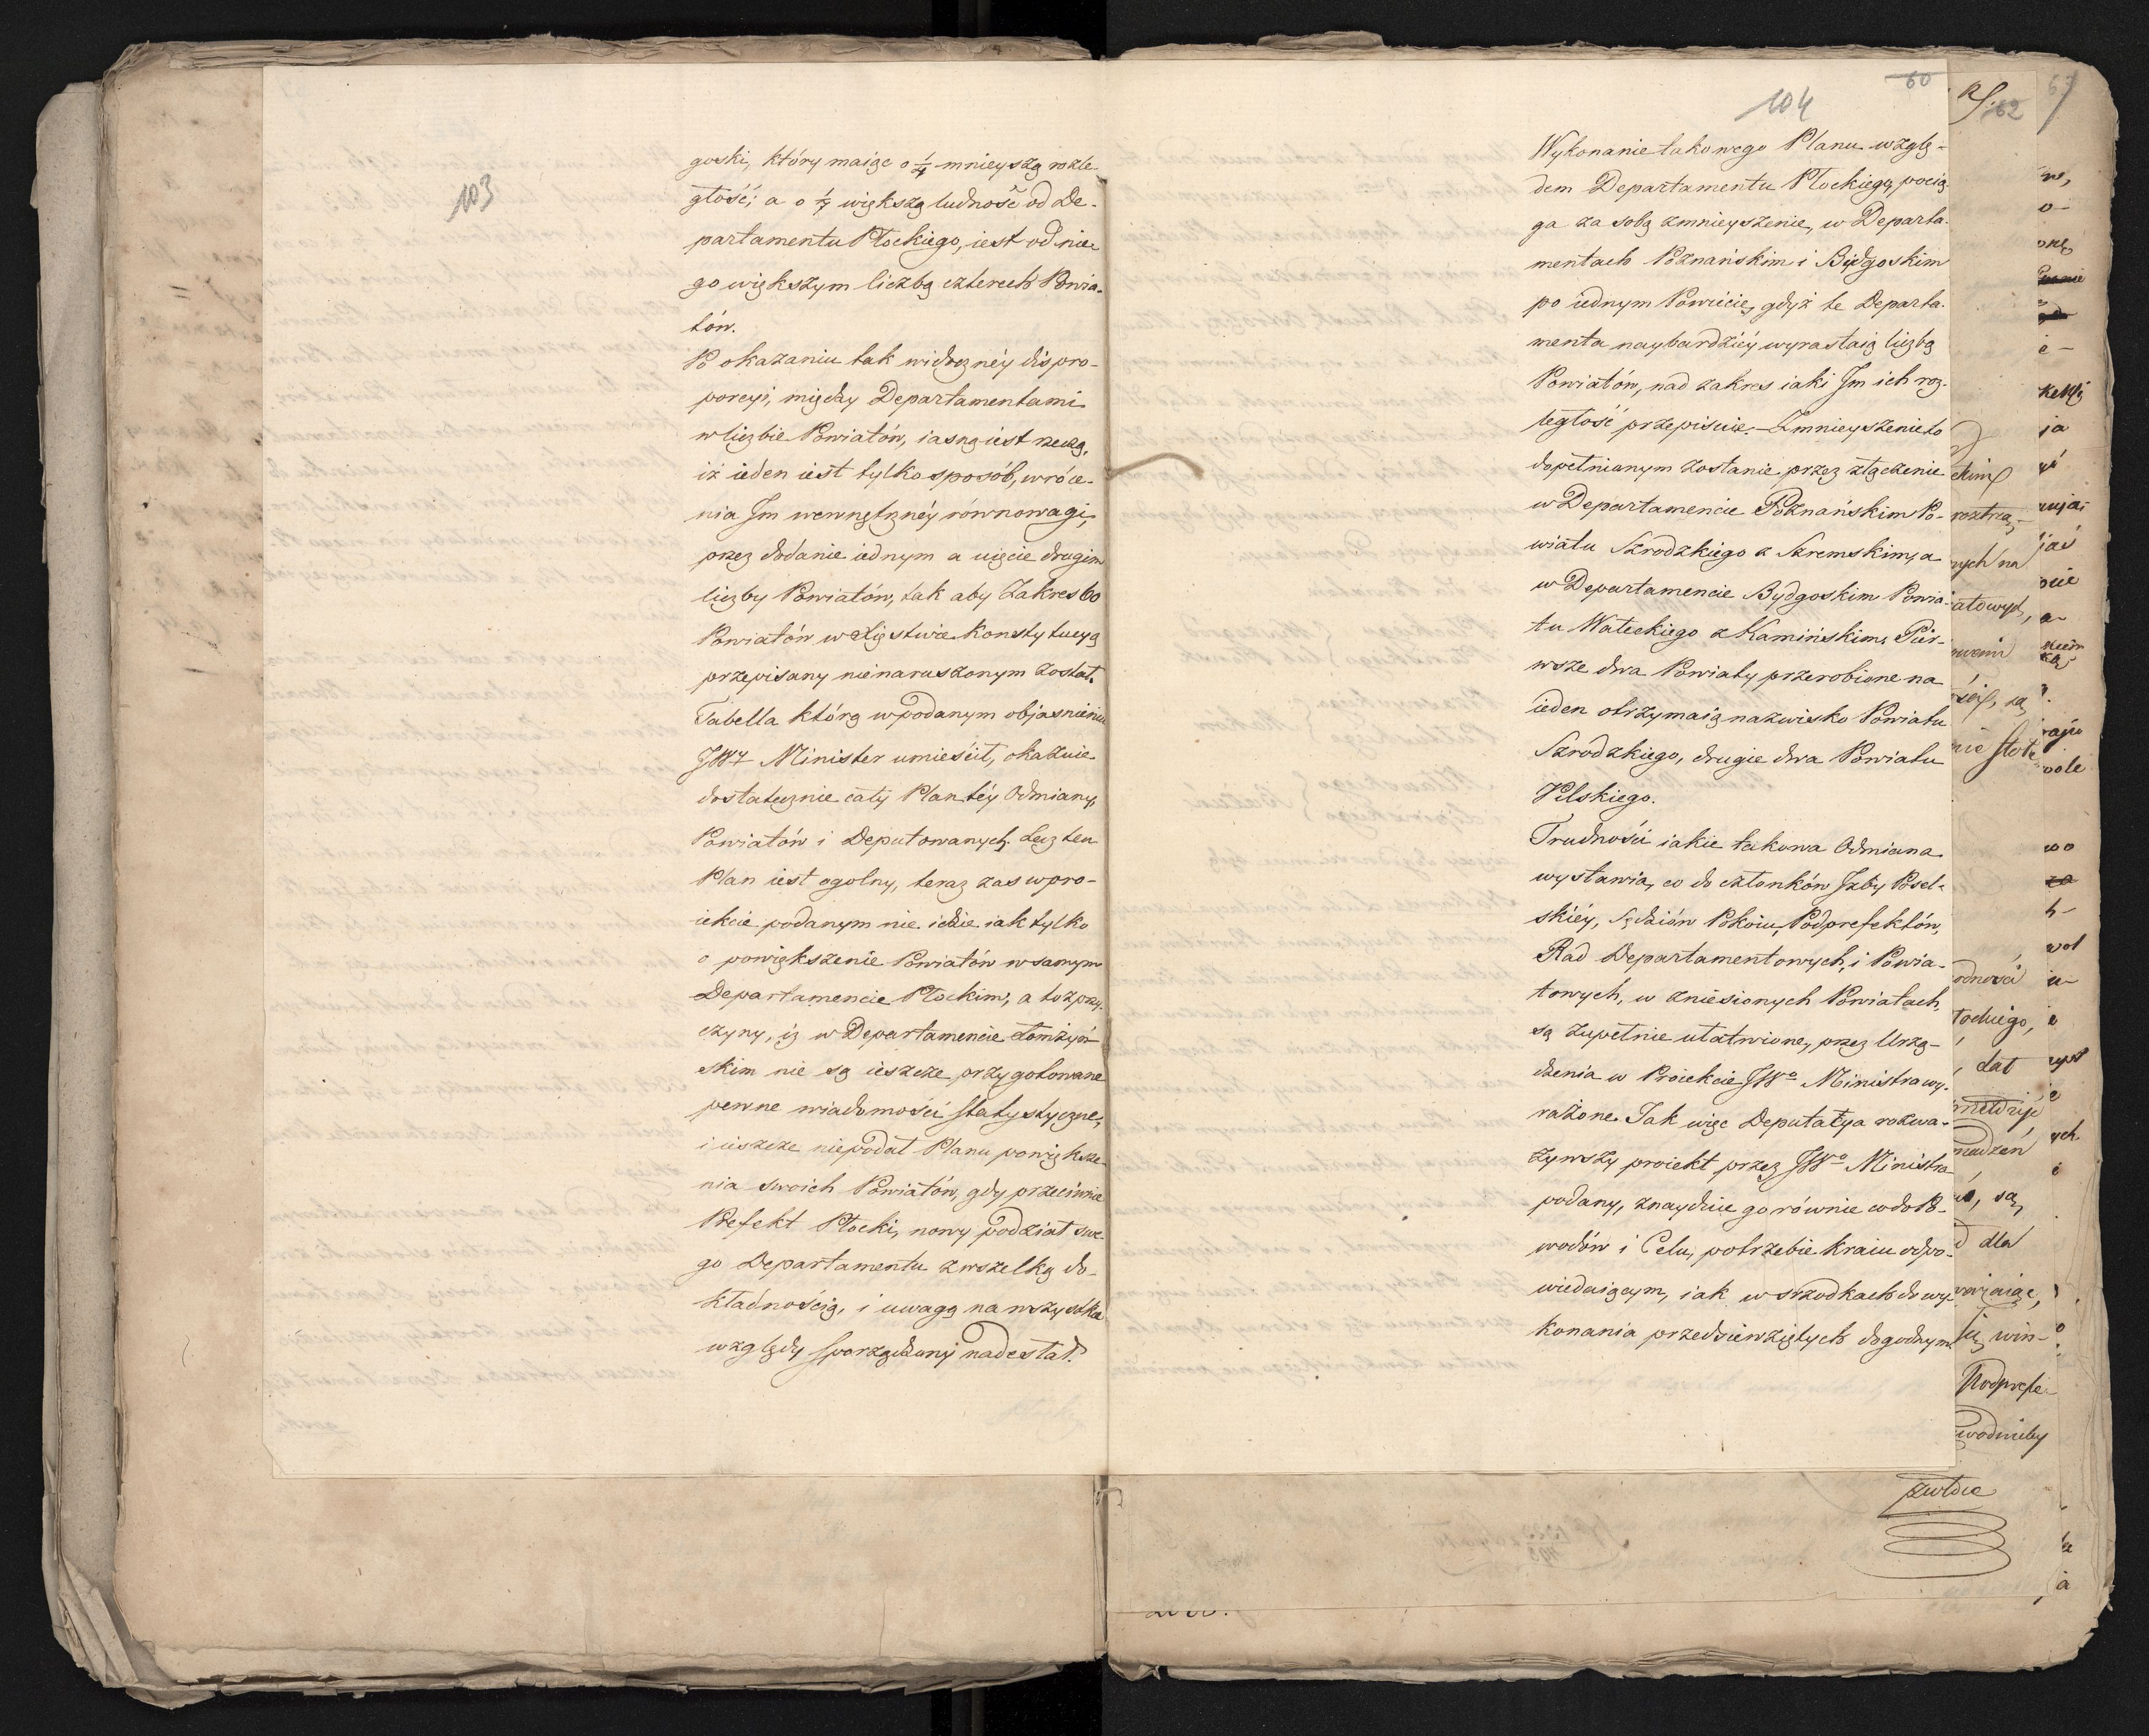 103
goski, który maiąc o 1/4 mnieyszą rozle-
głość; a o 1/7 większą ludność od De-
partamentu Płockiego, iest od nie-
go większym liczbą czterech Powia-
tów.
Po okazaniu tak widoczney dispro-
porcyi, między Departamentami
w liczbie Powiatów, iasną iest rzeczą,
iż ieden iest tylko sposób, wróce-
nia Im wewnętrznéy równowagi,
przez dodanie iednym a uięcie drugim
liczby Powiatów, tak aby Zakres 60
Powiatów w Xięstwie Konstytucyą
przepisany nienaruszonym został.
Tabella którą w podanym objasnieniu
JW Minister umieścił, okazuie
dostatecznie cały Plan téy Odmiany
Powiatów i Deputowanych. Lecz ten
Plan iest ogolny, teraz zas w pro-
iekcie podanym nie idzie iak tylko
o powiększenie Powiatów w samym
Departamencie Płockim, a to z przy-
czyny, iż w Departamencie Łomżyń-
skim nie są ieszcze przygotowane
pewne wiadomości statystyczne,
i ieszcze niepodał Planu powiększe-
nia swoich Powiatów, gdy przeciwnie
Prefekt Płocki, nowy podział swe-
go Departamentu z wszelką do-
kładnością, i uwagą na wszystkie
względy sporządzony nadesłał.
60
104
Wykonanie takowego Planu wzglę-
dem Departamentu Płockiego, pocią-
ga za sobą zmnieyszenie, w Departa-
mentach Poznańskim i Bydgoskim
po iednym Powiecie, gdyż te Departa-
menta naybardziéy wyrastaią liczbą
Powiatów, nad zakres iaki Im ich roz-
ległość przepisuie. Zmnieyszenie to
dopełnianym zostanie przez złączenie
w Departamencie Poznańskim Po-
wiatu Szrodzkiego z Szremskim, a
w Departamencie Bydgoskim Powia-
tu Wałeckiego z Kamińskim. Pier-
wsze dwa Powiaty przerobione na
ieden otrzymaią nazwisko Powiatu
Szrodzkiego, drugie dwa Powiatu
Pilskiego.
Trudności iakie takowa Odmiana
wystawia, co do członków Izby Posel-
skiéy, Sędziów Pokoiu, Pódprefektów,
Rad Departamentowych, i Powia-
towych, w zniesionych Powiatach,
są zupełnie ułatwione, przez Urzą-
dzenia w Proiekcie JWo Ministra wy-
rażone. Tak więc Deputatya rozwa-
żywszy proiekt przez JWo Ministra
podany, znayduie go równie co do Po-
wodów i Celu, potrzebie kraiu odpo-
wiedaiącym, iak w szrodkach do wy-
konania przedsięwziętych dogodnym
62
roztrzą-
nych na
dla
win-
Podprefe-